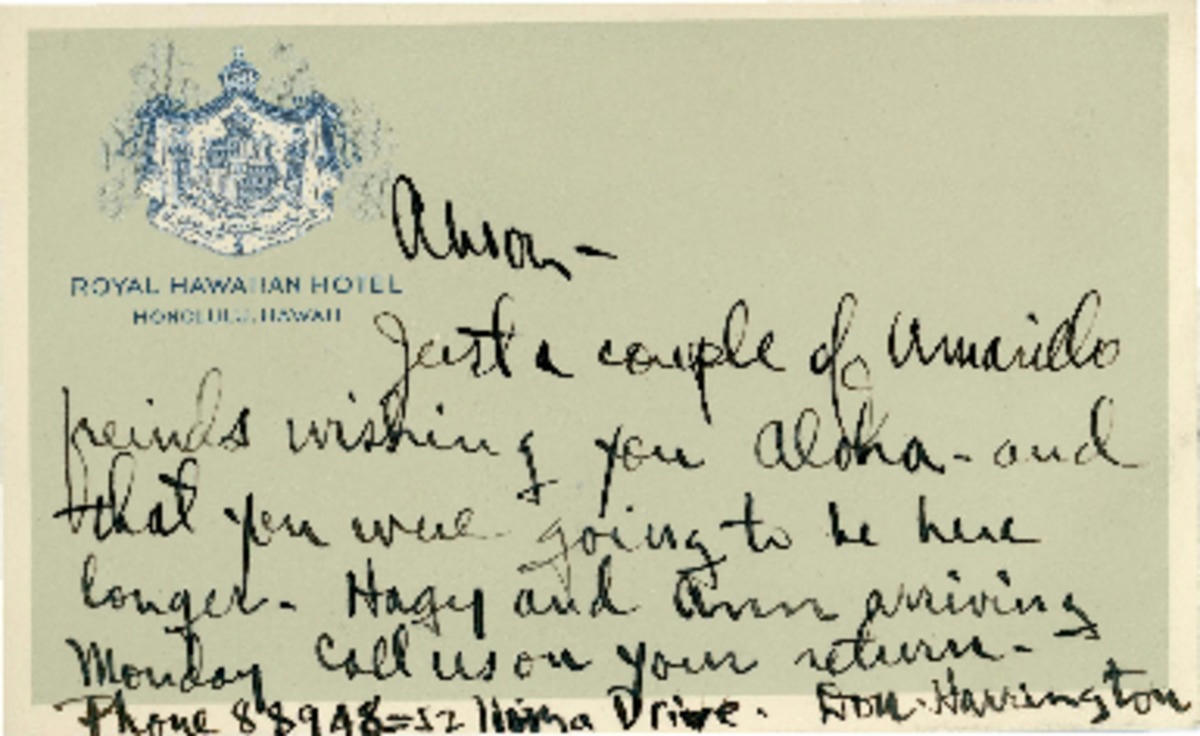 ROYAL HAWAIIAN HOTEL
HONOLULU, HAWAII
Anson -
Just a couple of Amarillo
freinds wishing you Aloha - and
that you were going to be here
longer - Hagy and Ann arriving
Monday Call us on your return -
Phone 88948 = 52 Drive. Don Harrington